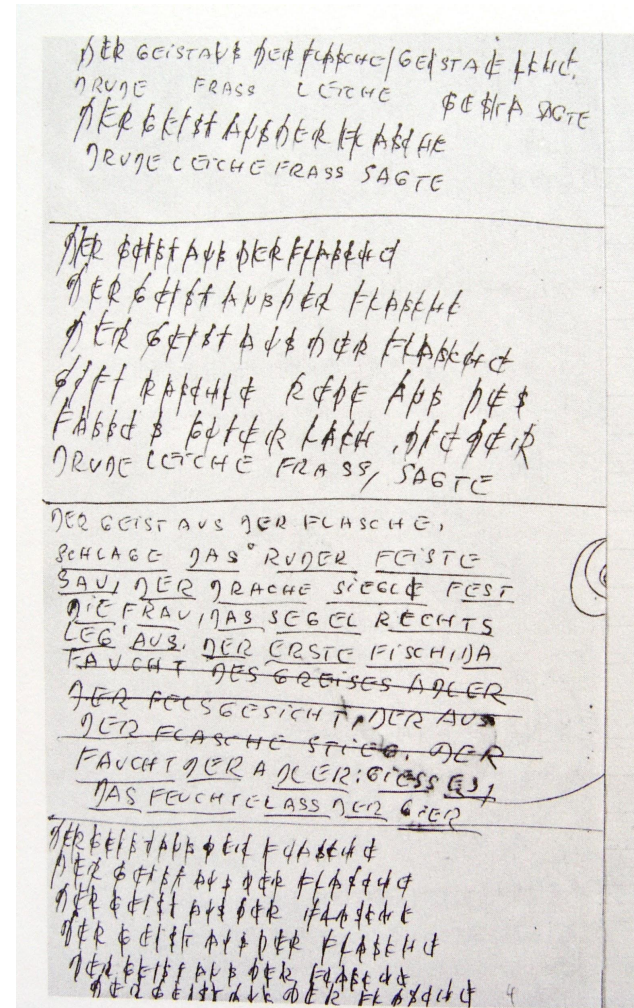 DER GEIST AUS DER FLASCHE/GEISTA
DRUDE FRASS LEICHE SAGTE
DER GEIST AUS DER FLASCHE
DRUDE LEICHE FRASS SAGTE
DER GEIST AUS DER FLASCHE
DER GEIST AUS DER FLASCHE
DER GEIST AUS DER FLASCHE
GIFT REDE AUS DES
FASSES GUTER
DRUDE LEICHE FRASS, SAGTE
DER GEIST AUS DER FLASCHE,
SCHLAGE DAS RUDER FEISTE
SAU, DER DRACHE SIEGLE FEST
DIE FRAU, DAS SEGEL RECHTS
LEG' AUS. DER ERSTE FISCH, DA
FAUCHT DES GREISES ADLER
DER FELSGESICHT, DER AUS
DER FLASCHE STIEG. DER
FAUCHT DER ADLER: GIESS ES,
DAS FEUCHTE LASS DER GIER
DER GEIST AUS DER FLASCHE
DER GEIST AUS DER FLASCHE
DER GEIST AUS DER FLASCHE
DER GEIST AUS DER FLASCHE
DER GEIST AUS DER FLASCHE
DER GEIST AUS DER FLASCHE